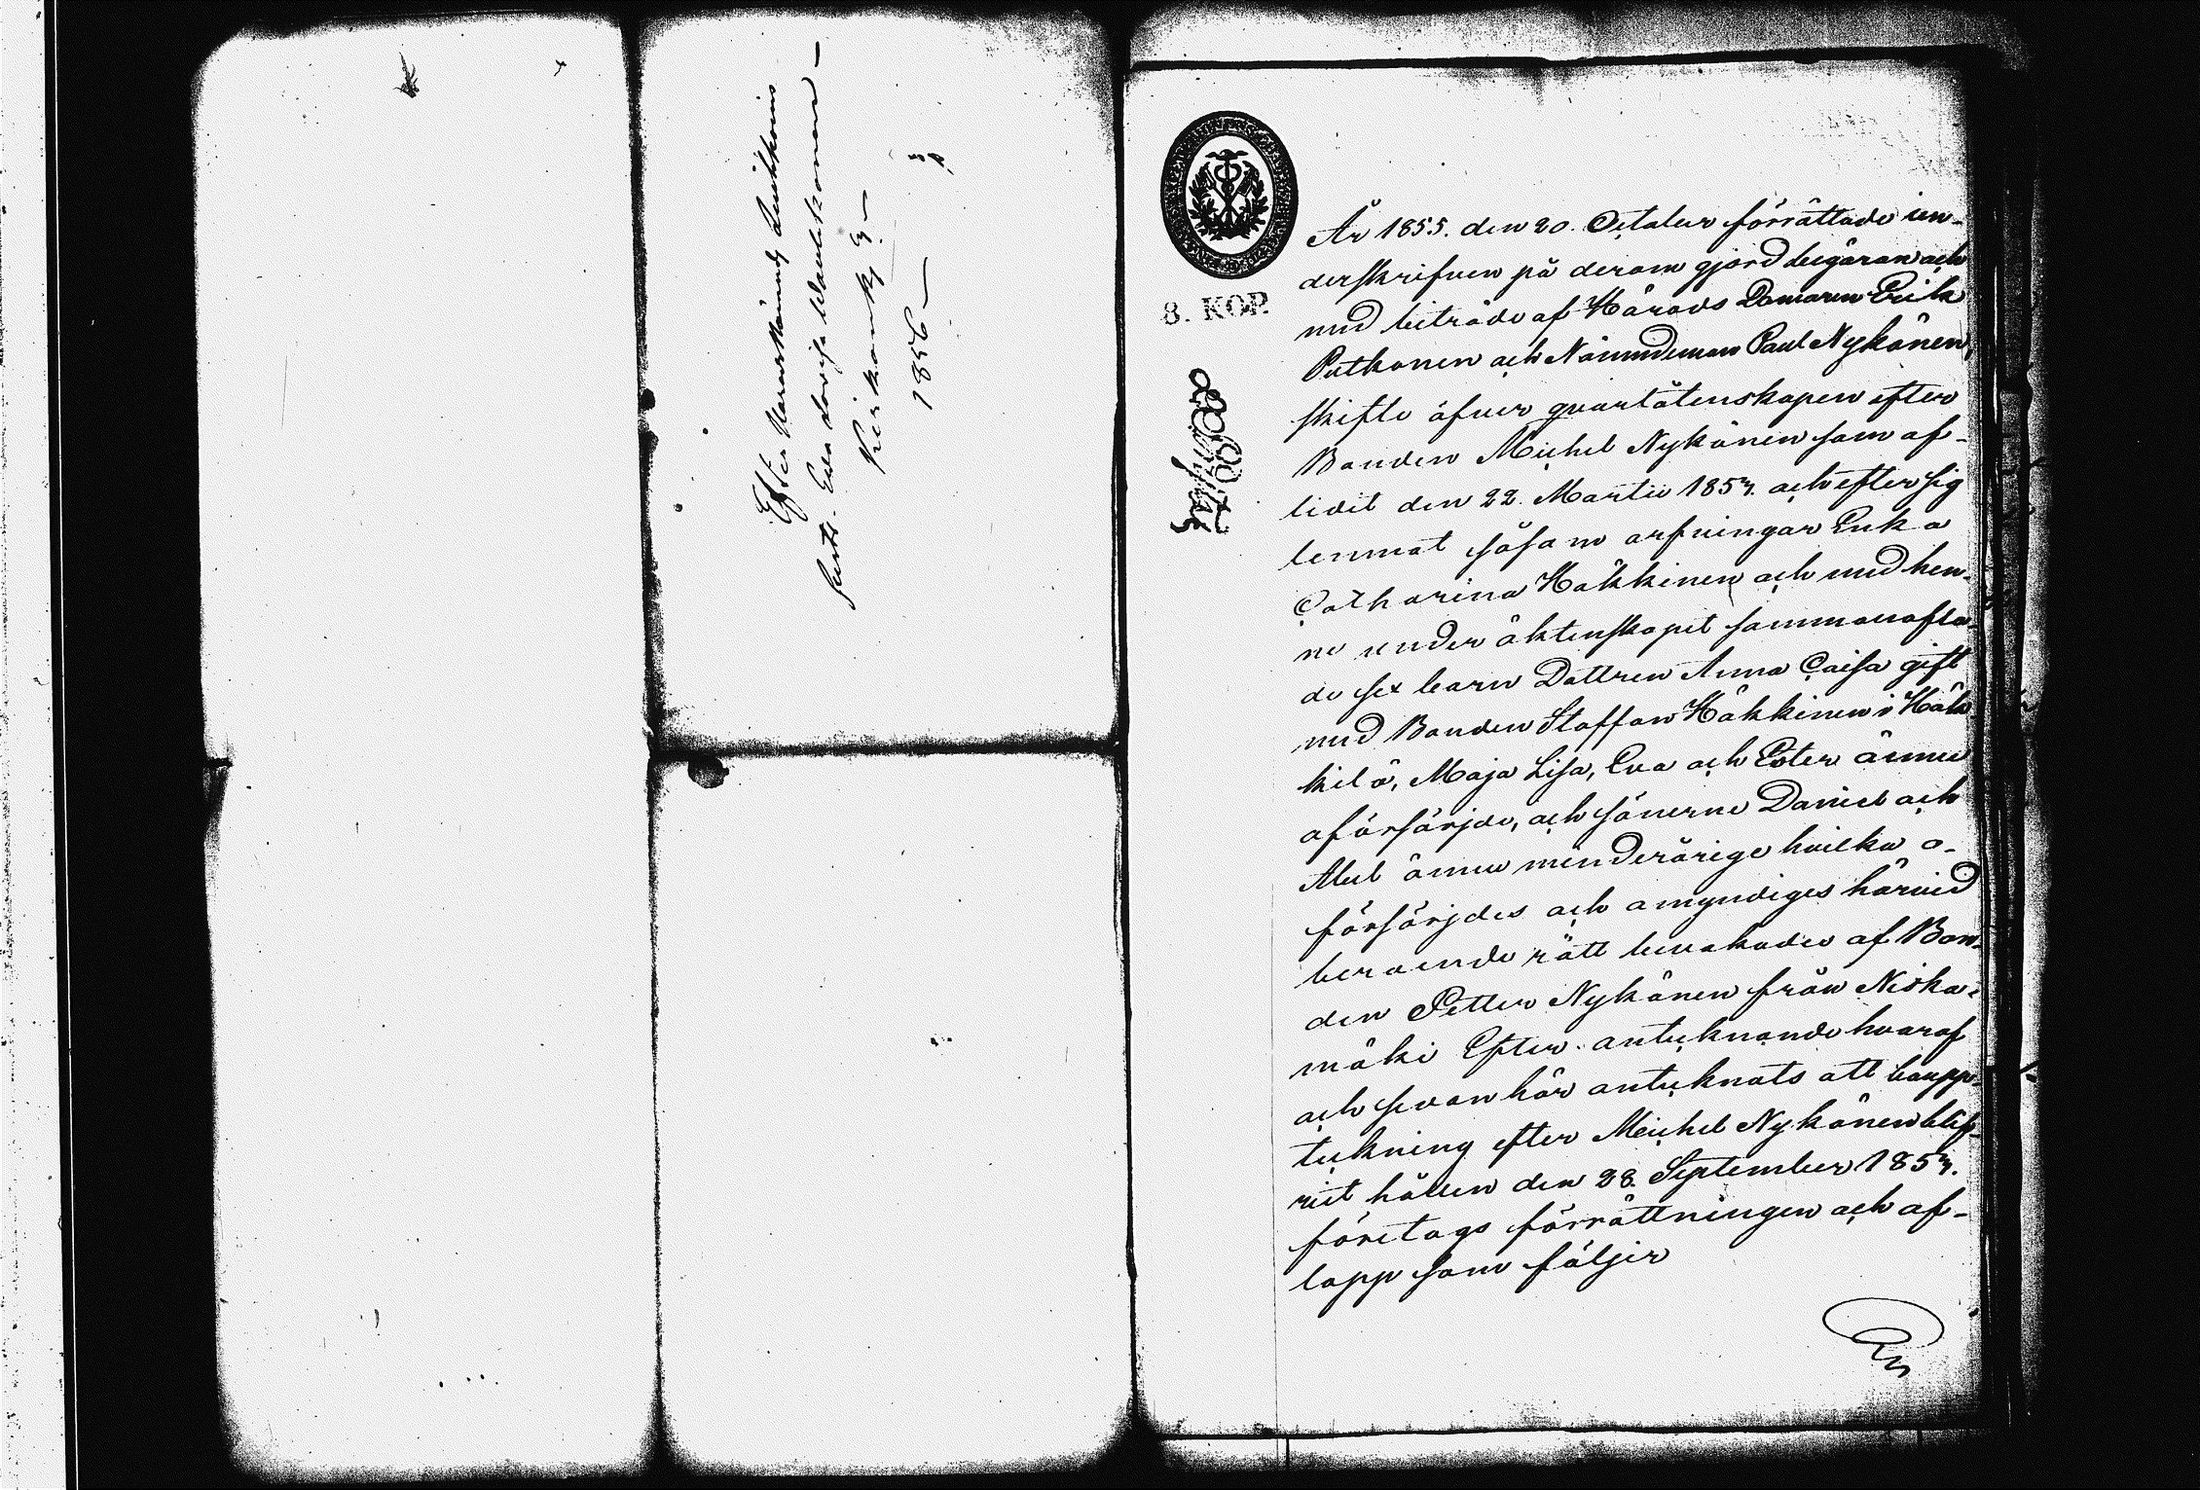 Efter
Enka Lovisa
Kirkonky
1856
8. KOP.
År 1855. den 20. October förrättade un-
derskrifven på derom gjord begäran och
med biträde af Härads Domaren Erik
Putkonen och Nämndeman Paul Nykänen,
skifte öfver qvarlåtenskapen efter
Bonden Michel Nykänen som af-
lidit den 22. Martii 1853. och efter sig
lemnat såsom arfvingar Enka
Catharina Häkkinen och med hen-
ne under äktenskapet sammanafla-
de sex barn Dottren Anna Caisa gift
med Bonden Staffan Häkkinen i Häk
kilä, Maja Lisa, Eva och Ester ännu
oförsörjde, och sönerne Daniel och
Abel ännu minderårige hvilka o-
försörjdes och omyndiges härvid
beroende rätt bevakades af Bon-
den Petter Nykänen från Niska-
mäki Efter antecknande hvaraf
och sedan här antecknats att boupp-
teckning efter Michel Nykänen blif-
vit hållen den 28. September 1853.
företogs förrättningen och af-
lopp som följer